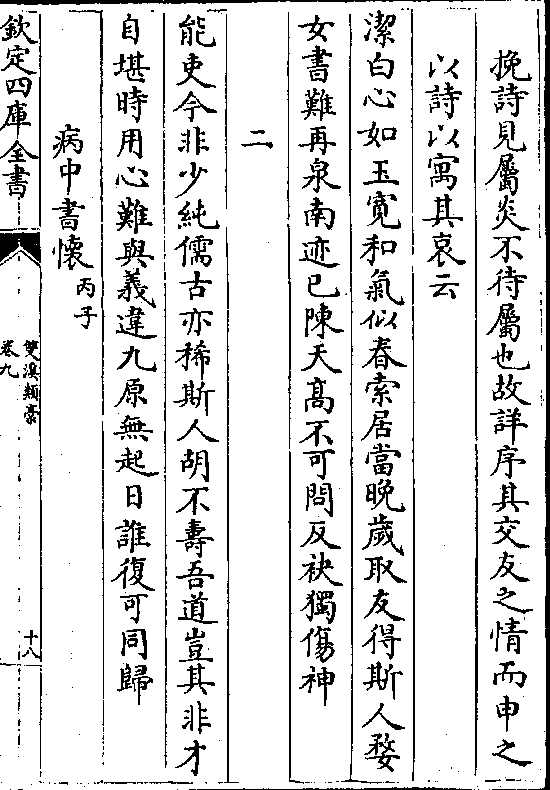 挽詩見屬炎不待屬也故詳序其交友之情而申之
以詩以寓其哀云
潔白心如玉寛和氣似春索居當晚歲取友得斯人婺
女書難再泉南迹已陳天髙不可問反袂獨傷神
二
能吏今非少純儒古亦稀斯人胡不壽吾道豈其非才
自堪時用心難與義違九原無起日誰復可同歸
病中書懷丙子
欽定四庫全書
雙溪類豪
卷九
十八